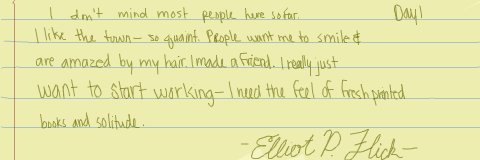 I don't mind most people here so far. Day 1
I like the town - so quaint. People want me to smile &
are amazed by my hair. I made a friend. I really just
want to start working - I need the feel of fresh printed
books and solitude.
- Elliot P. Flick -